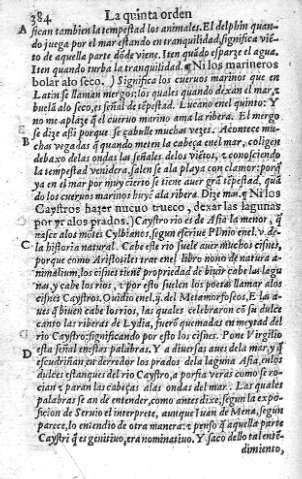 384 La quinta orden
A fican tambien la tempestad los animales. El delphin quan-
do juega por el mar estando en tranquilidad, significa viẽ-
to de aquella parte dõde viene. Iten quãdo esparge el agua.
Iten quando turba la tranquilidad. ¶ Ni los marineros
bolar alo seco.) Significa los cueruos marinos que en
Latin se llaman mergos: los quales quando dexan el mar, z
buelã alo seco, es señal de tẽpestad. Lucano enel quinto: Y
no me aplaze q̃ el cueruo marino ama la ribera. El mergo
se dize assi porque se çabulle muchas vezes. Acontece mu-
B chas vegadas q̃ quando meten la cabeça enel mar, coligen
debaxo de las ondas las señales delos viẽtos, z conosciendo
la tempestad venidera, salen se ala playa con clamor: porq̃
ya en el mar por muy cierto se tiene auer grã tẽpestad, quã
do los cueruos marinos huyẽ ala ribera. Dize mas. ¶ Ni los
Caystros hazer nucuo trueco, dexar las lagunas
por yr alos prados.) Caystro rio es de Asia la menor, q̃
nasce alos mõtes Cylbianos, segun escriue Plinio enel .v. de
C la historia natural. Cabe este rio suele auer muchos cisnes,
porque como Aristotiles trae enel libro nono de natura a-
nimalium, los cisnes tienẽ propriedad de biuir cabe las lagu
nas, y cabe los rios, z por esto suelen los poetas llamar alos
cisnes Caystros. Ouidio enel .ij. del Metamorfoseos, E las a-
ues q̃ biuen cabe los rios, las quales celebraron cõ su dulce
canto las riberas de Lydia, fuerõ quemadas en meytad del
rio Caystro: significando por esto los cisnes. Pone Virgilio
D esta señal en estas palabras, Y a diuersas aues dela mar, y q̃
escudriñan en derredor los prados dela laguna Asia, enlos
dulces estanques del rio Caystro, a porfia veras como se ro-
cian z parãn las cabeças alas ondas del mar. Las quales
palabras se an de entender, como antes dixe, segun la expo-
sicion de Seruio el interprete, aunque Iuan de Mena, segun
parece, lo entendio de otra manera: z penso q̃ aquella parte
Caystri q̃ es genitiuo, era nominatiuo. Y saco dello tal entẽ-
dimiento,